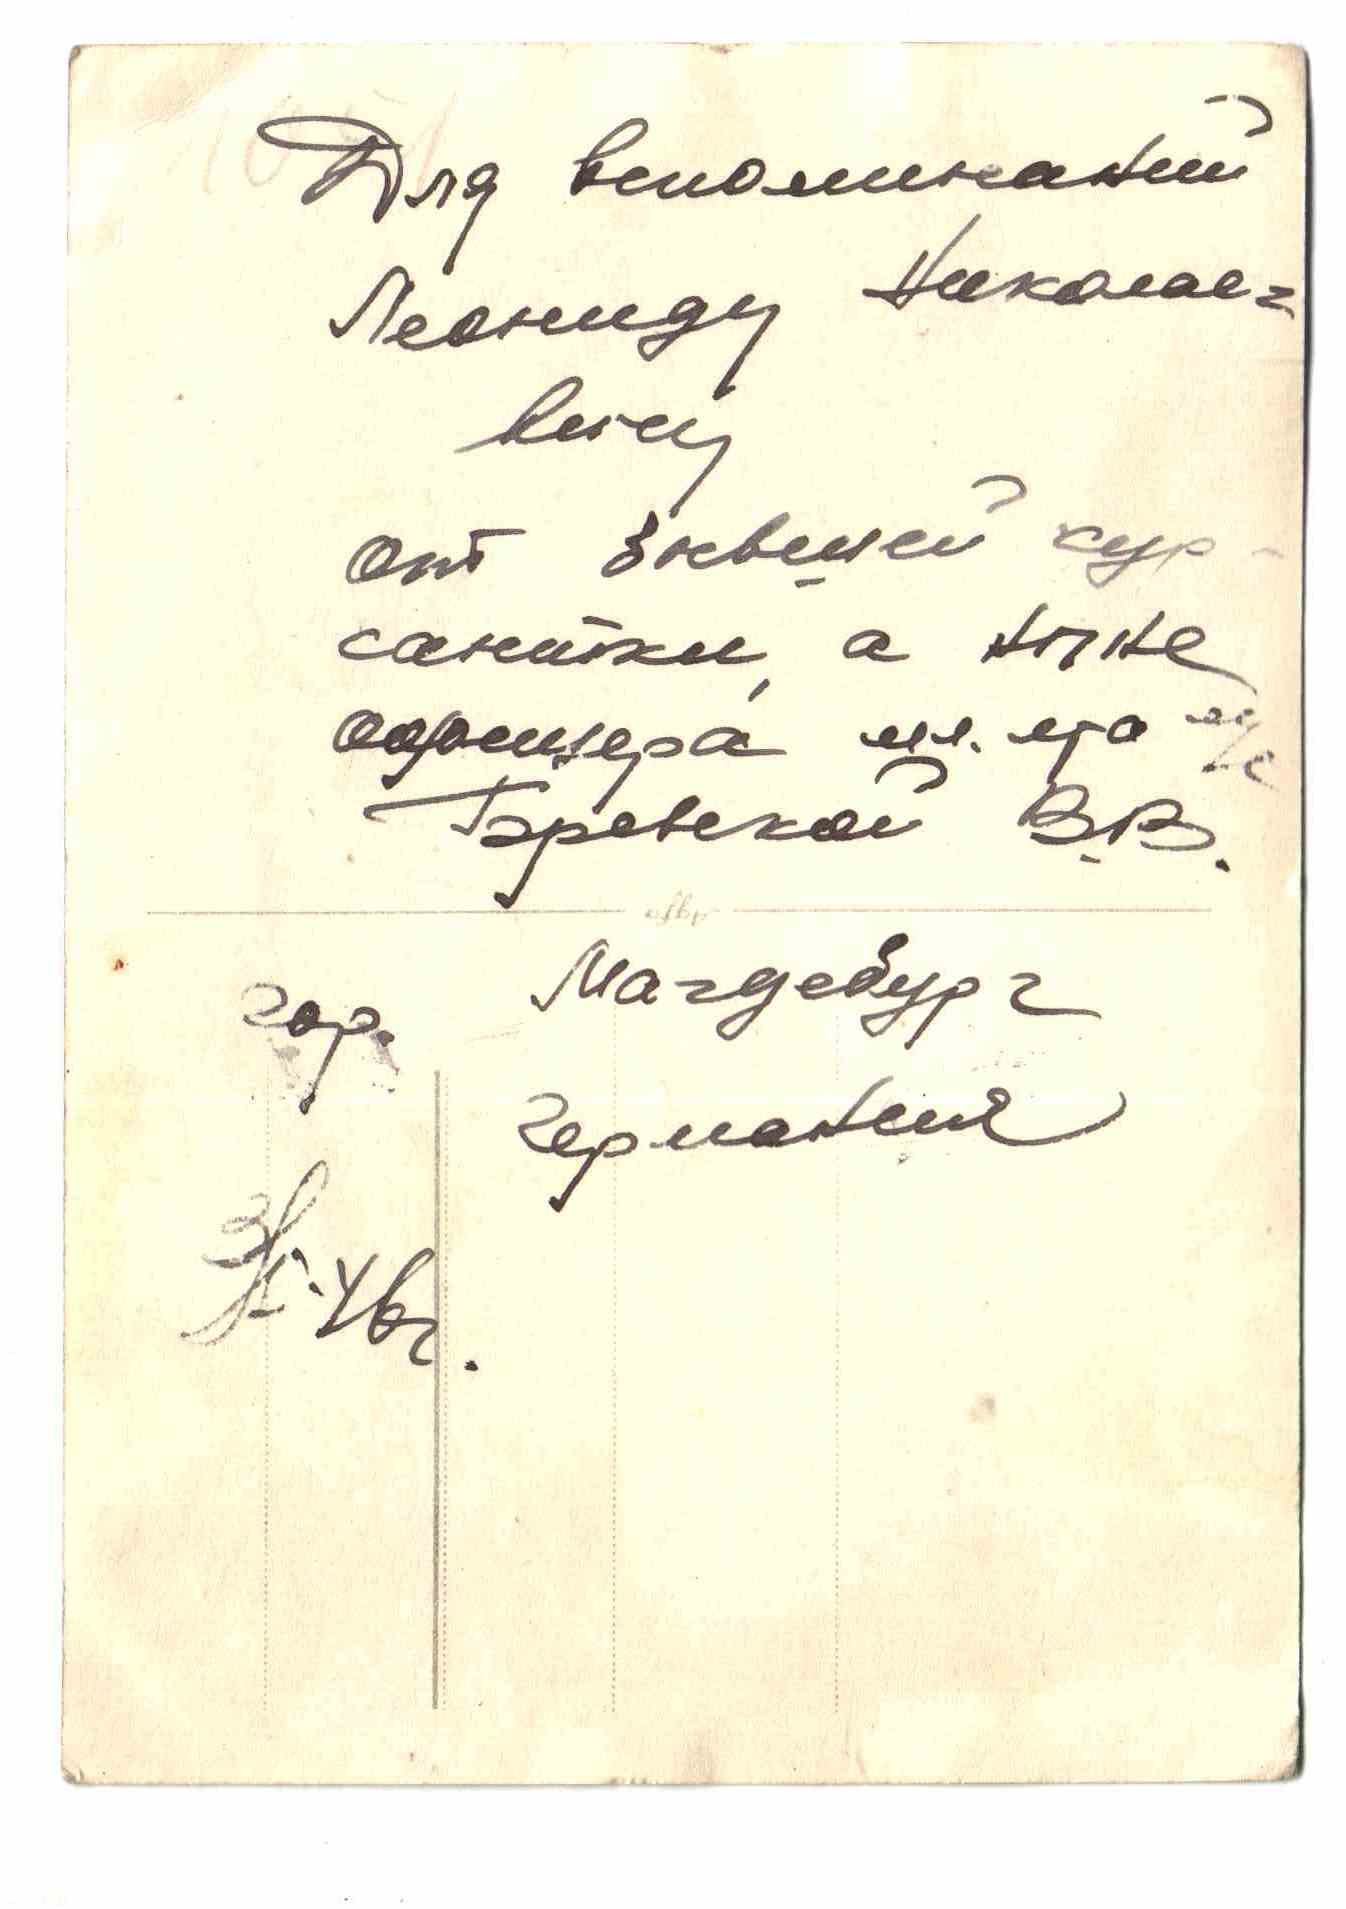 Для воспоминаний
Леониду Николае=
вичу
от бывшей кур-
сантки, а ныне
офицера мл. л-та м/с
Боевской В.В.
гор. Магдебург
Германия
3/V-46г.